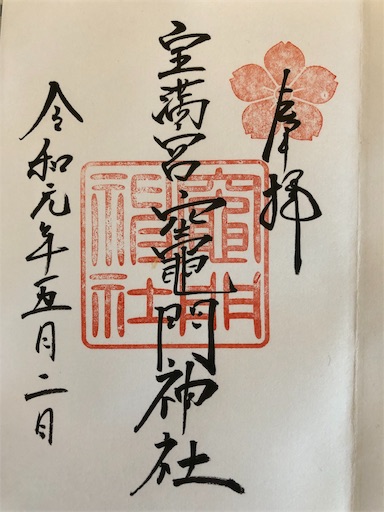 奉拝
宝満宮竈門神社
竈門神社
令和元年五月二日